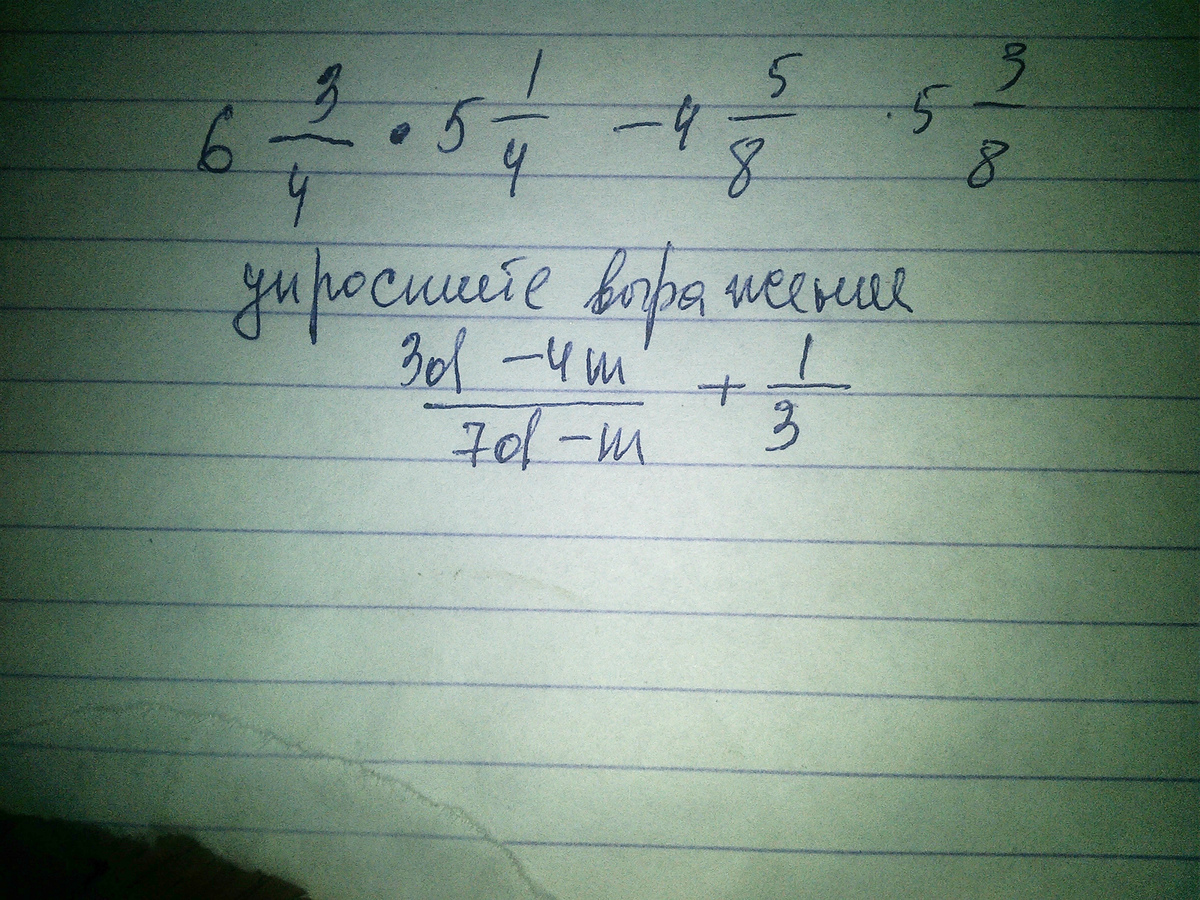 6 3/4 • 5 1/4 - 4 5/8 · 5 3/8
упростите выражение
3d - 4m / 7d - m + 1/3